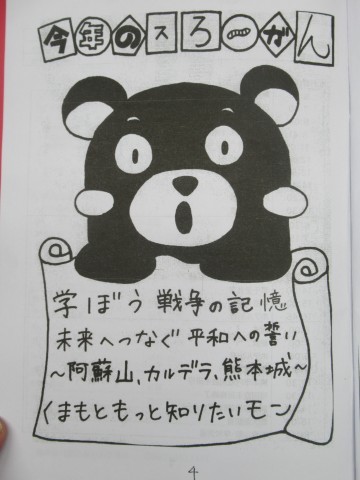 今年のスろーがん
学ぼう戦争の記憶
未来へつなぐ平和への誓い
～阿蘇山、カルデラ、熊本城～
くまもともっと知りたいモン
4